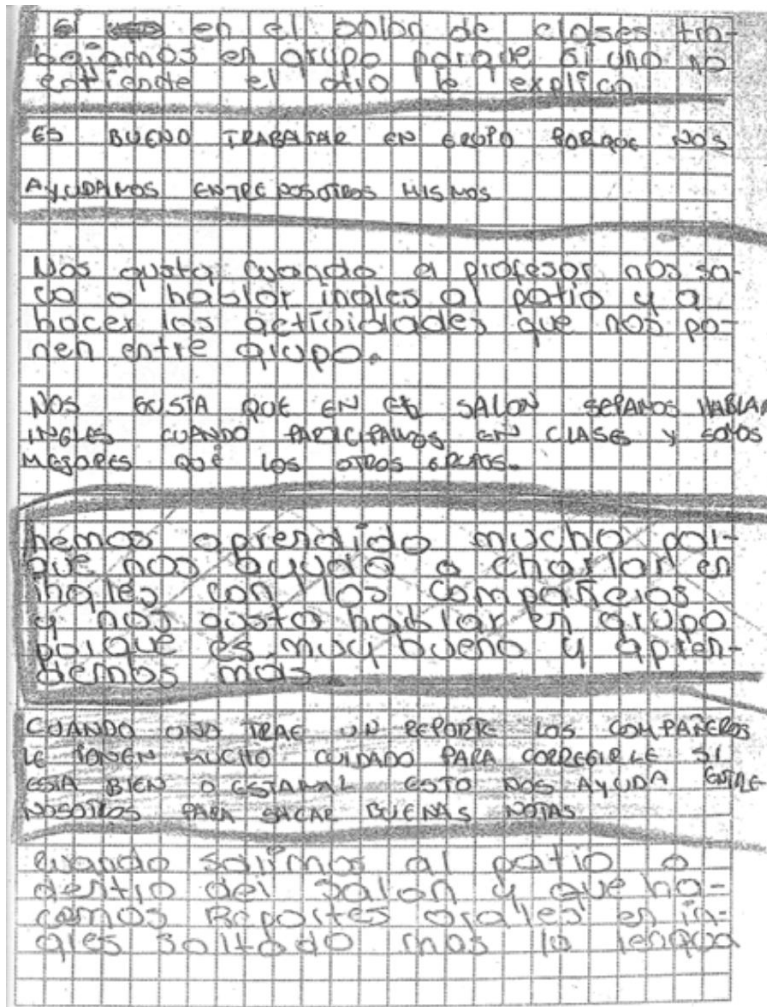 en el salon de clases tra-
bajamos en grupo porque si uno no
entiende el otro le explica
ES BUENO TRABAJAR EN GRUPO PORQUE NOS
AYUDAMOS ENTRE NOSOTROS MISMOS
Nos gusta cuando el profesor nos sa-
ca a hablar ingles al patio y a
hacer las actividades que nos po-
nen entre grupo.
NOS GUSTA QUE EN EL SALON SEPAMOS HABLAR
INGLES CUANDO PARTICIPAMOS EN CLASES Y SOMOS
MEJORES QUE LOS OTROS GRUPOS.
hemos aprendido mucho por-
que nos ayuda a charlar en
ingles con los compañeros
y nos gusta hablar en grupo
porque es muy bueno y apren-
demos mas
CUANDO UNO TRAE UN REPORTE LOS COMPAÑEROS
LE PONEN MUCHO CUIDADO PARA CORREGIRLE SI
ESTA BIEN O ESTAMAL ESTO NOS AYUDA ENTRE
NOSOTROS PARA SACAR BUENAS NOTAS
cuando salimos al patio o
dentro del salon y que ha-
cemos Reportes orales en in-
gles soltado mas la lengua